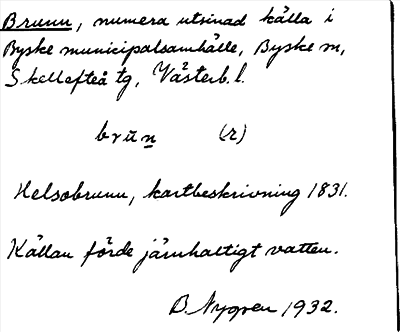 Brunn, numera utsinad källa i
Byske municipalsamhälle, Byske sn,
Skellefteå tg, Västerb. l.
brūn (r)
Helsobrunn, kartbeskrivning 1831.
Källan förde järnhaltigt vatten.
B. Nygren 1932.